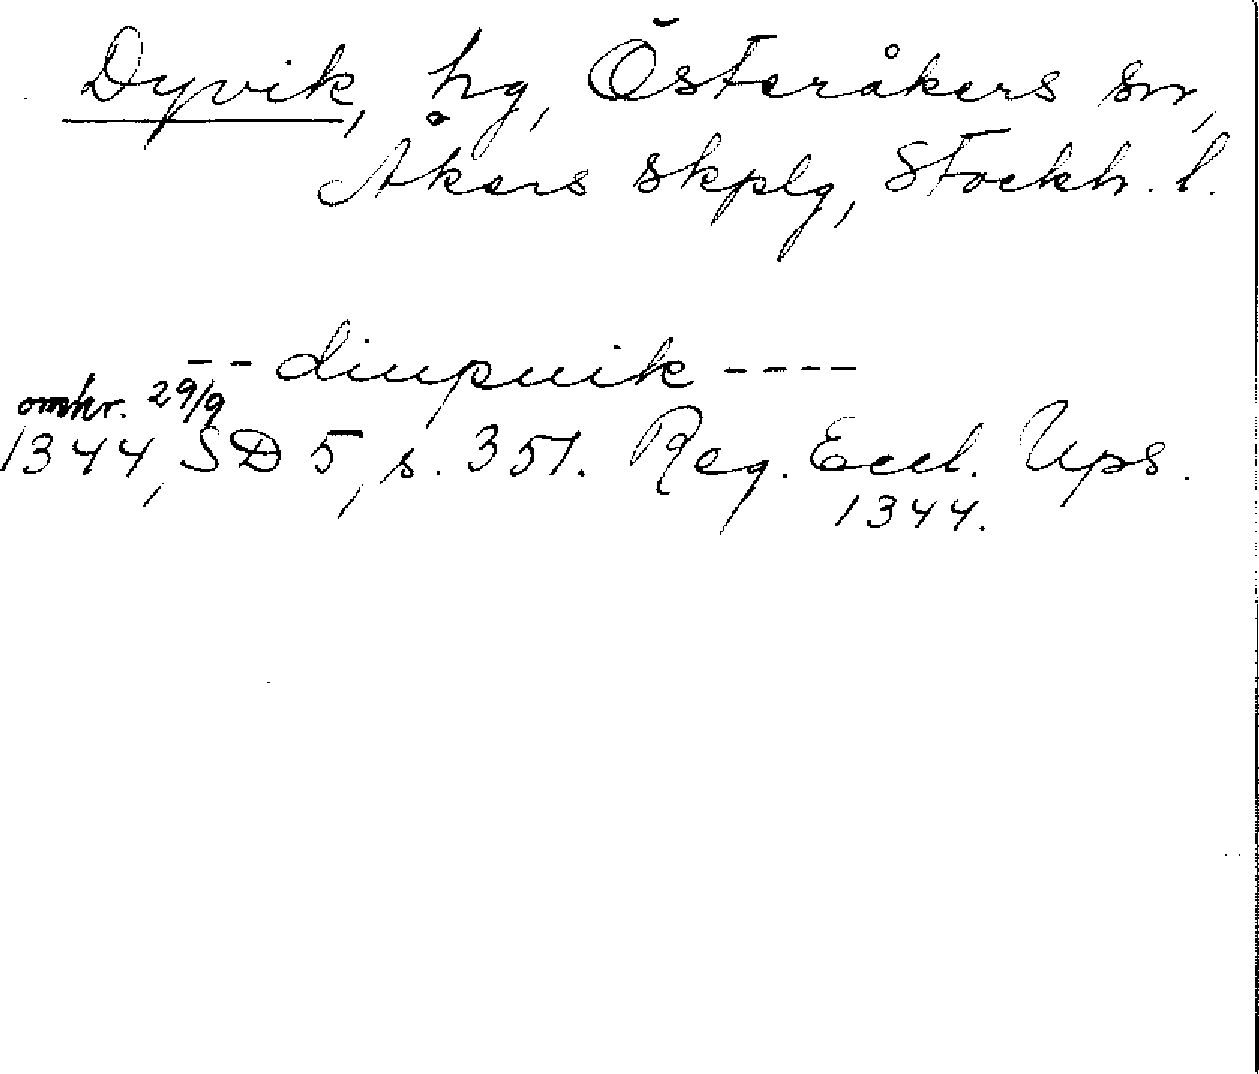 Dyvik, hg, Österåkers sn,
Åkers skplg, Stockh. l.
-- diupuik ----
omkr. 29/9
1344, SD 5, s. 351. Reg. Eccl. Ups.
1344.